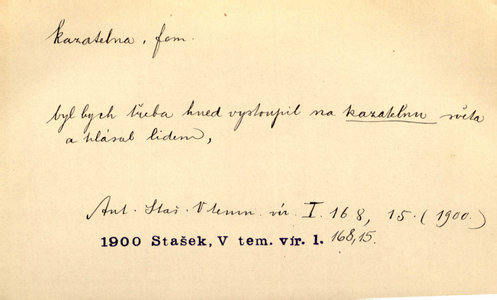 kazatelna, fem.
byl bych třeba hned vystoupil na kazatelnu světa
a hlásal lidem,
Ant. Staš. V temn. vír. I. 168, 15. (1900.)
1900 Stašek, V tem. vír. 1. 168,15.